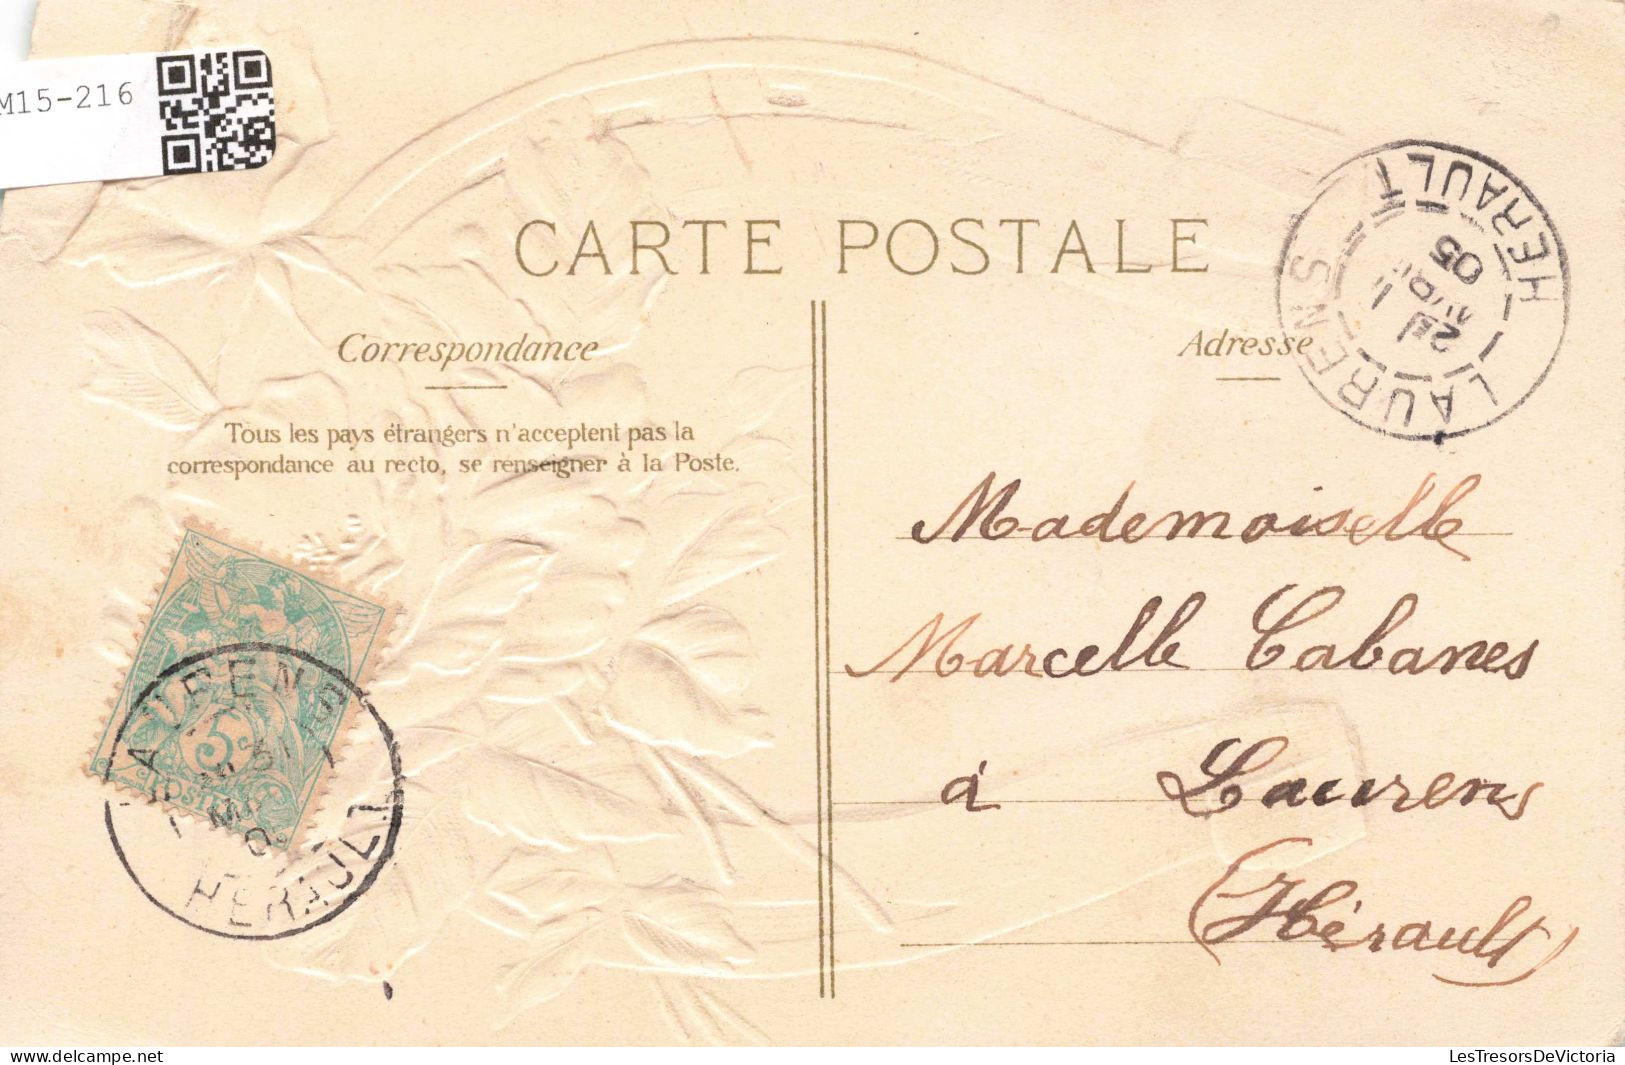 M15-216
CARTE POSTALE
Correspondance
Tous les pays étrangers n'acceptent pas la
correspondance au recto, se renseigner à la Poste.
Adresse
LAURENS
HERAULT
05
Mademoiselle
Marcelle Cabanes
à Laurens
(Hérault)
5c
POSTES
LAURENS
HERAULT
delcampe.net
LesTresorsDeVictoria